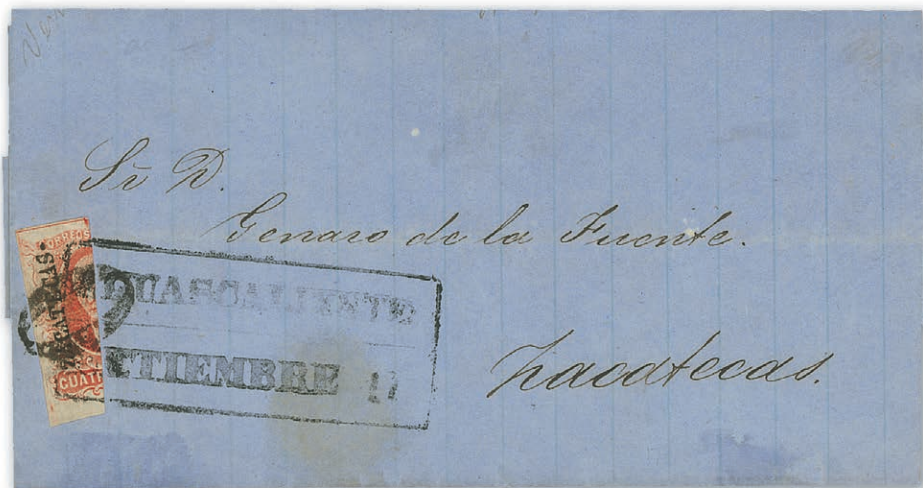 Sr D.
Genaro de la Fuente.
Zacatecas.
CORREOS
ZACATECAS
CUATR
GUASCALIENTE
TIEMBRE 17